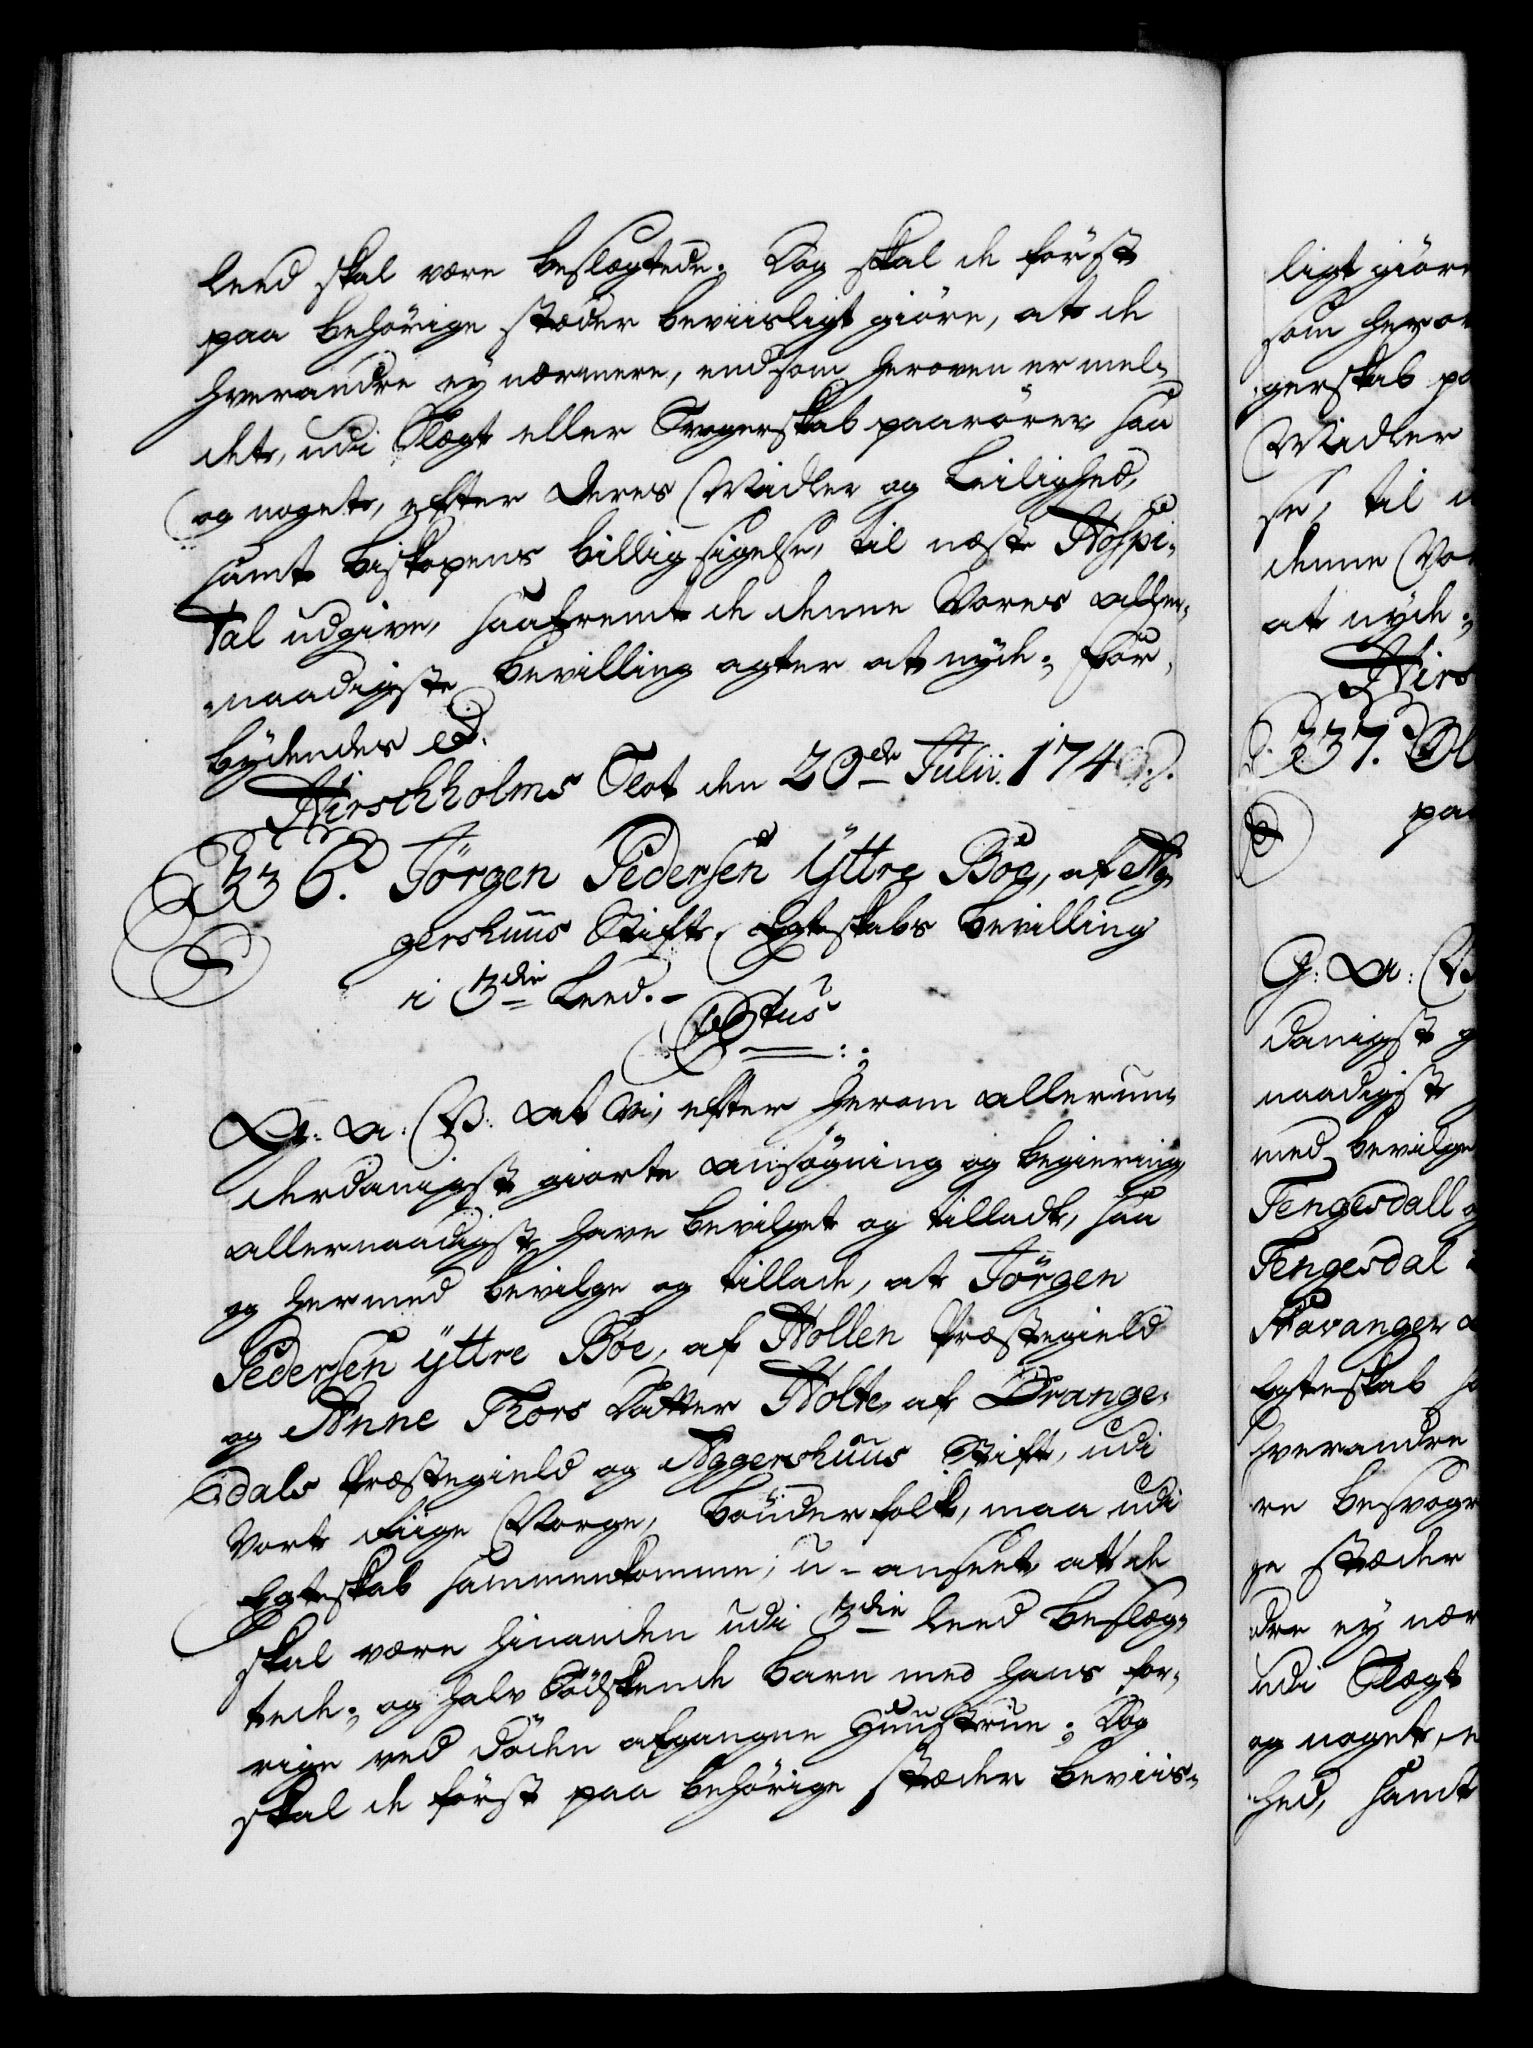 Leed skal være beslægtede; Dog skal de först
paa behörige stæder beviisligt giöre, at de
hverandre ey nærmere, end som heroven er mel-
det, udi Slægt eller Svogerskab paarörer saa
og noget, efter deres Midler og Leilighed,
samt Biskopens billig sigelse, til næste Hospi-
tal udgive, saafremt de denne Vores aller-
naadigste Bevilling agter at nyde; For-
bydendes &.
Hirschholms Slot den 20de Julii. 174
336. Jörgen Pedersen Yttre Böe, af Ag-
gershuus Stift, Egteskabs Bevilling
i 3die Leed.-
G: A: V: At Vi, efter herom allerun-
derdanigst giorte ansögning og begiering
allernaadigst have bevilget og tilladt, saa
og hermed bevilge og tillade, at Jörgen
Pedersen Yttre Böe, af Hollen Præstegield
og Anne Thors Datter Holte, af Drange-
dals Præstegield og Aggershuus Stift, udi
Vort Riige Norge, bönderfolk, maa udi
Egteskab sammenkomme, u-anseet at de
skal være hinanden udi 3die Leed beslæg-
tede; og halv Södskende barn med hans for-
rige ved döden afgangne Huustrue; Dog
skal de först paa behörige stæder beviis-
ligt giöre
som herov
gerskab pa
Midler
se, til
denne Vor
at nyde;
Hirs
337. Ol
paa
G: A: V
danigst g
naadigst
med bevilge
Tengesdall og
Tengesdal
Stavanger
Egteskab
hverandre
re besvogr
ge stæder
dre ey nær
udi Slægt
og noget, e
hed, samt